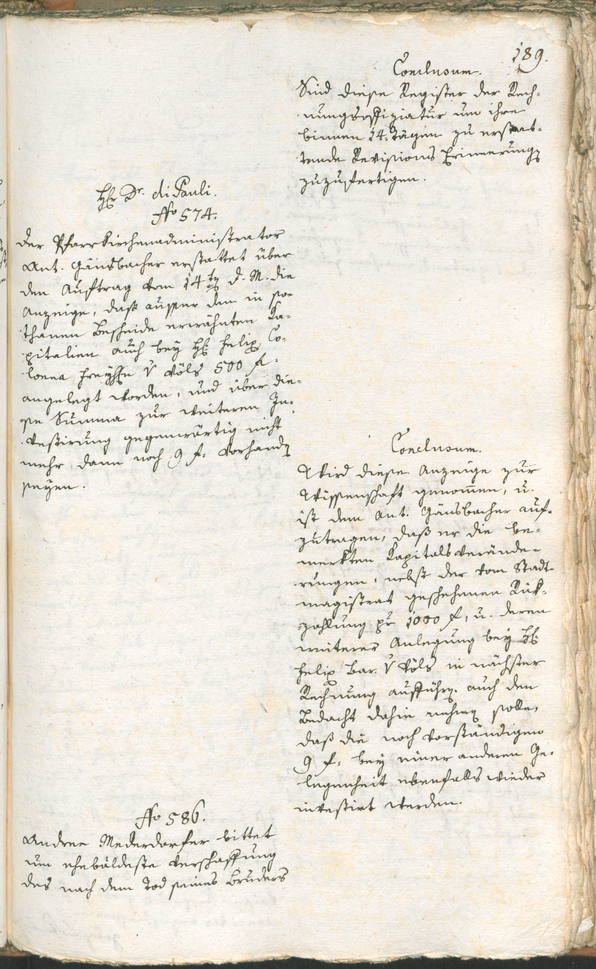 189.
Conclusum.
Sind diese Register der Rech-
nungsoffiziatur um ihre
binnen 14. Tägen zu erstat-
tende Revisions Erinnerung
zuzufertigen.
H. Dr. di Pauli.
No 574.
Der Pfarrkirchenadministrator
Ant. Gänsbacher erstattet über
den Auftrag vom 14ten d. M. die
Anzeige, daß ausser den in so-
thanen Bescheide erwähnten Ka-
pitalien auch bey H. Felix Co-
lonna Freyhn v Völs 500 f.
angelegt worden, und über die-
se Summa zur weiteren In-
vestirung gegenwärtig nicht
mehr dann noch 9 f. vorhand
seyen.
Conclusum.
Wird diese Anzeige zur
Wissenschaft genomen, u.
ist dem Ant. Gänsbacher auf-
zutragen, daß er die be-
merkten Kapitalsverände-
rungen, nebst der vom Stadt-
magistrat geschehenen Rük-
zahlung pr 1000 f, u. deren
weiterer Anlegung bey H.
Felix Bar. v Völs in nächster
Rechnung ausführ, auch den
Bedacht dahin nehmen solle,
daß die noch vorständigen
9 f. bey einer anderen Ge-
legenheit ebenfalls wieder
investirt werden.
No 586.
Andree Mederdorfer bittet
um ehebäldeste Verschaffung
des nach dem Tod seines Bruders